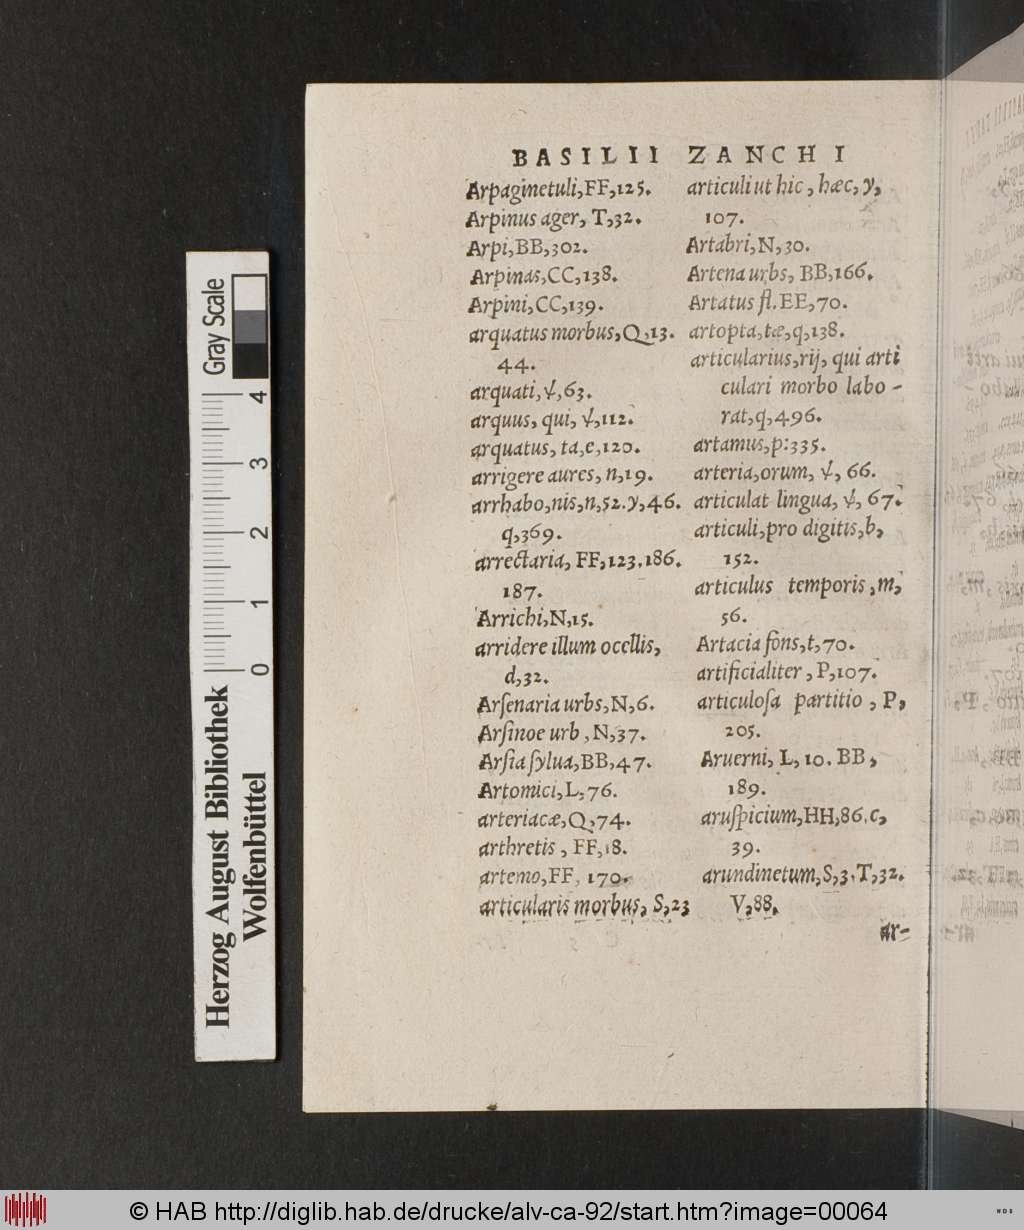 BASILII ZANCHI
Arpaginetuli,FF,125.
Arpinus ager, T,32.
Arpi,BB,302.
Arpinas,CC,138.
Arpini,CC,139.
arquatus morbus,Q,13.
44.
arquati,ψ,63.
arquus, qui, ψ,112.
arquatus, ta,e,120.
arrigere aures, n,19.
arrhabo,nis,n,52.y,46.
q,369.
arrectaria, FF,123.186.
187.
Arrichi,N,15.
arridere illum ocellis,
d,32.
Arſenaria urbs,N,6.
Arſinoe urb,N,37.
Arſia ſylua,BB,47.
Artomici,L,76.
arteriacæ,Q,74.
arthretis, FF,18.
artemo,FF, 170.
articularis morbus, S,23
articuli ut hic, hæc, y,
107.
Artabri,N,30.
Artena urbs, BB,166.
Artatus fl.EE,70.
artopta,tæ,q,138.
articularius,rij, qui arti
culari morbo labo-
rat,q,496.
artamus,p:335.
arteria,orum, ψ, 66.
articulat lingua, ψ, 67.
articuli,pro digitis,b,
152.
articulus temporis,m,
56.
Artacia fons,t,70.
artificialiter,P,107.
articuloſa partitio, P,
205.
Aruerni, L, 10. BB,
189.
aruſpicium,HH,86.c,
39.
arundinetum,S,3.T,32.
V,88.
ar-
Gray Scale
0 1 2 3 4
Herzog August Bibliothek
Wolfenbüttel
© HAB http://diglib.hab.de/drucke/alv-ca-92/start.htm?image=00064